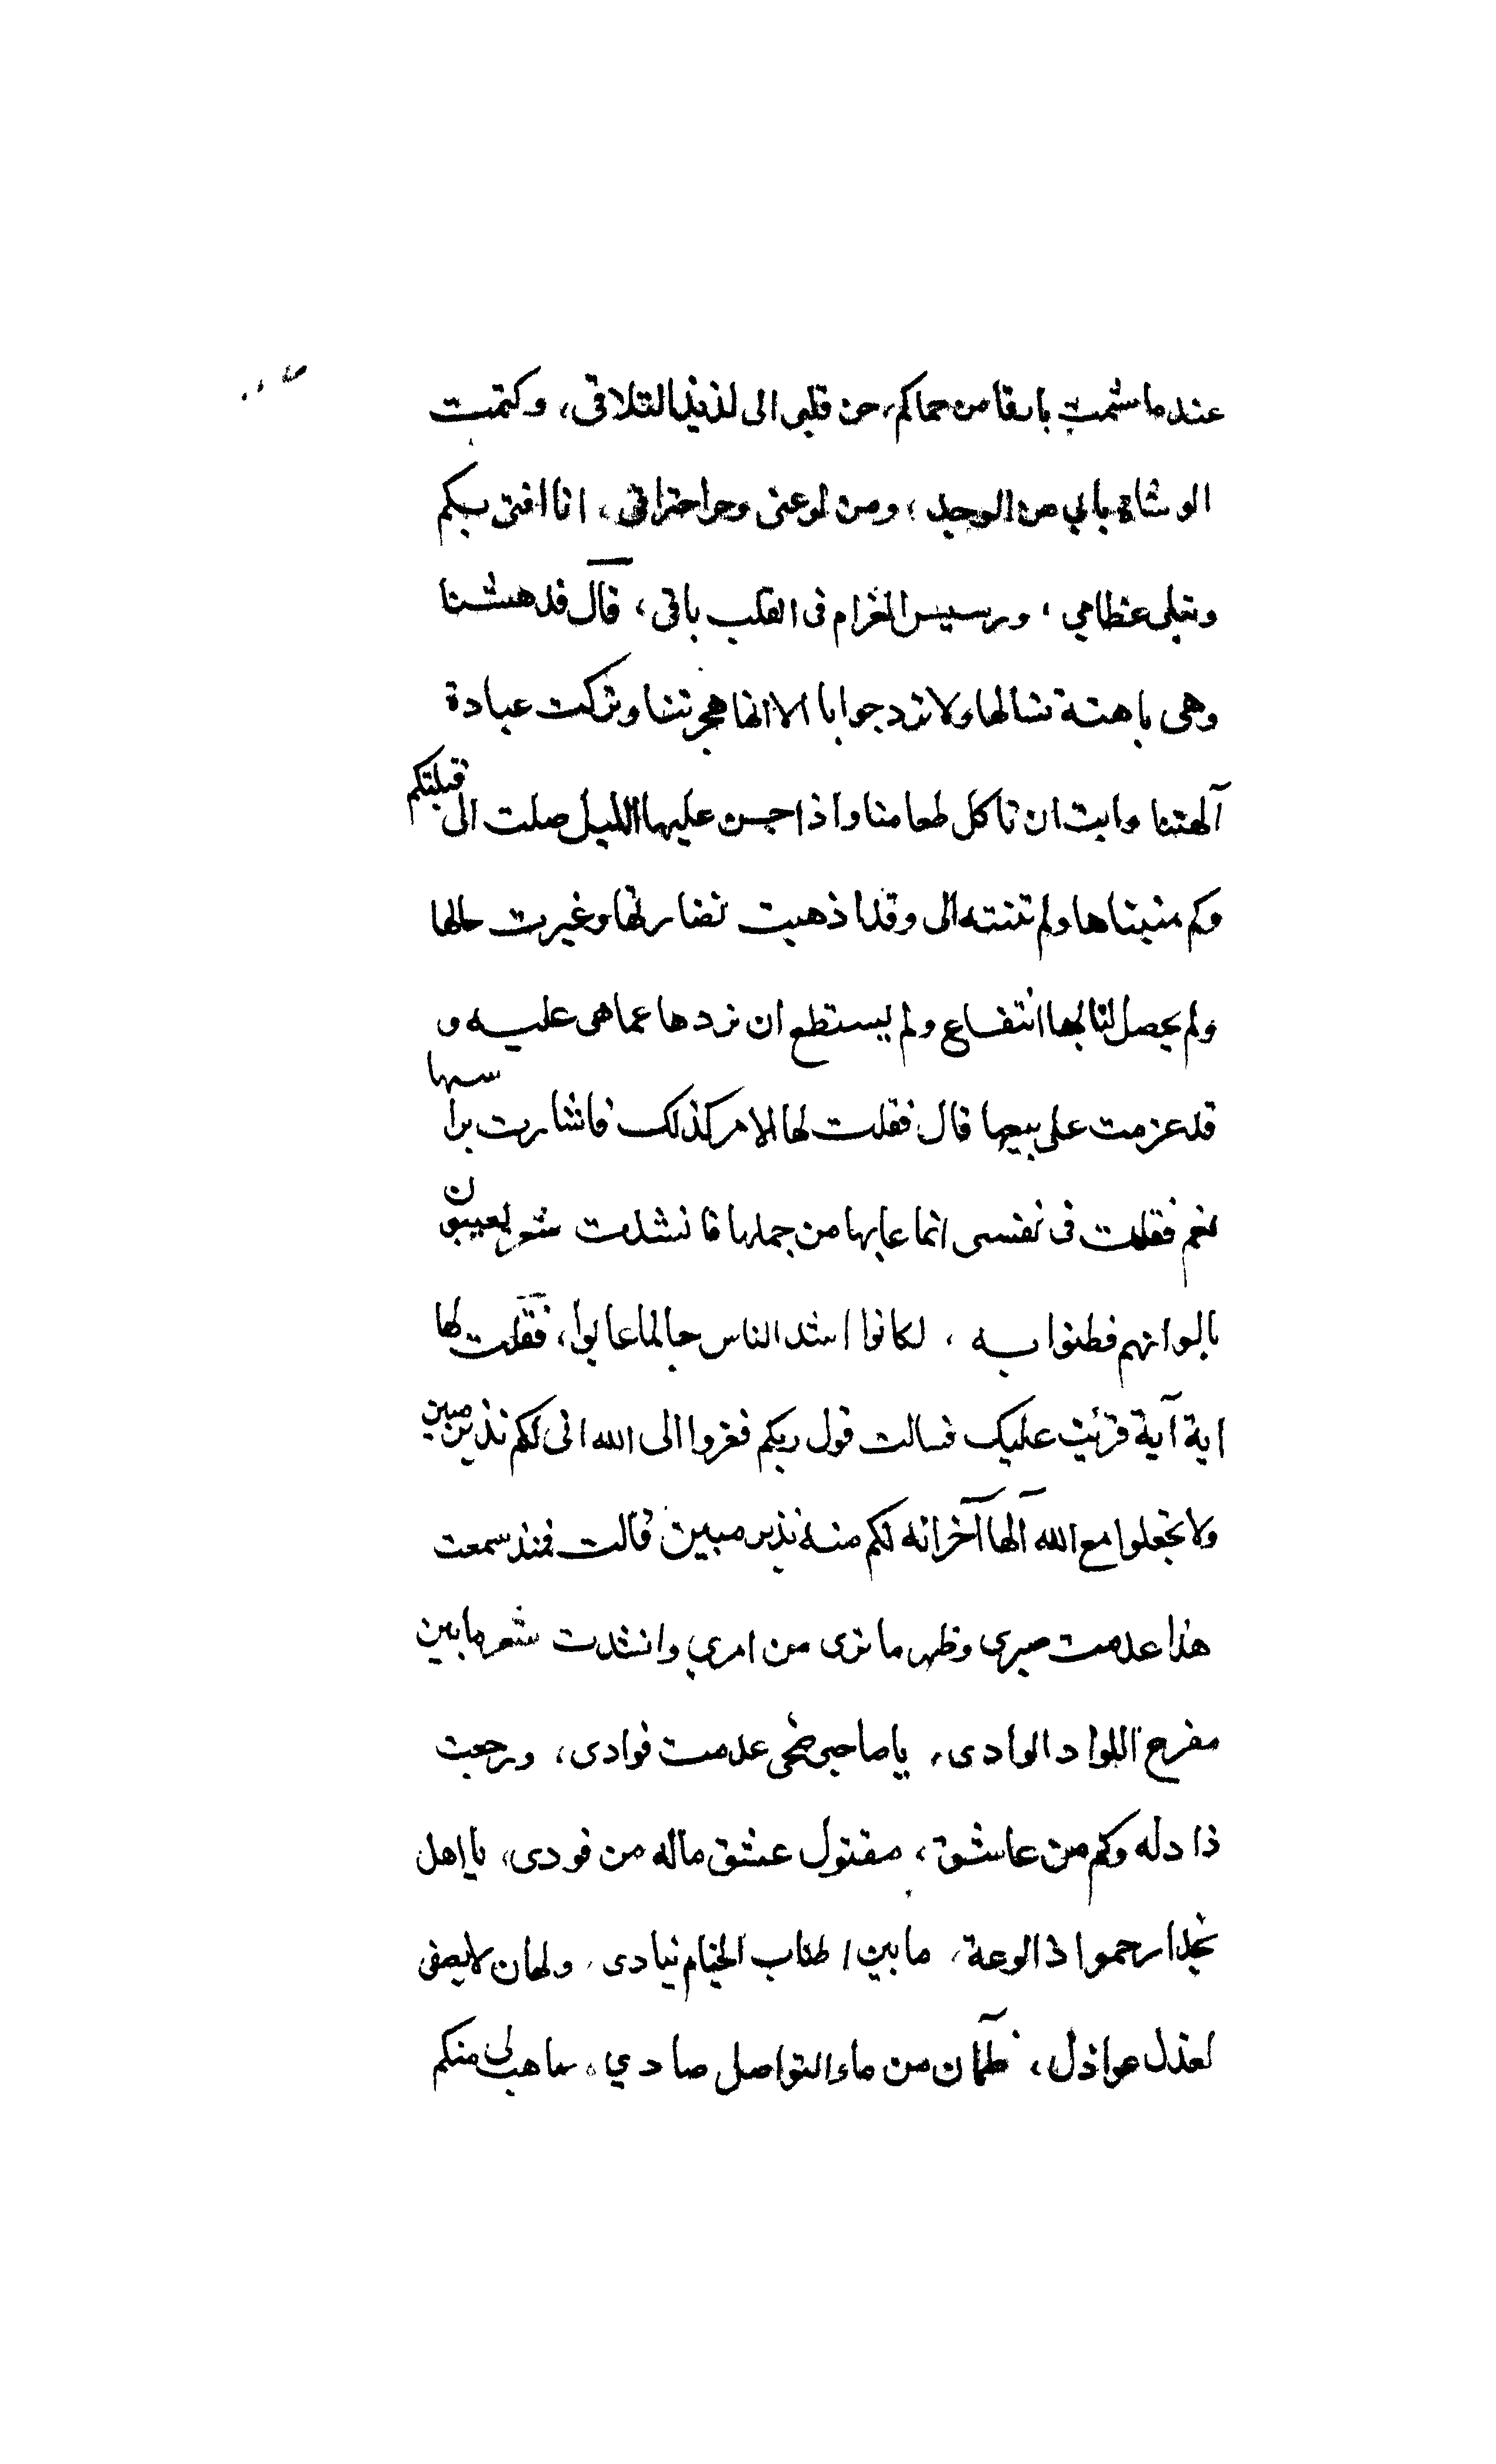 عندما شمت بارقا من حماكم، حن قلبى الى لذيذ التلاقى، وكتمت
الوشاة بابي من الوجد، ومن لوعتى وحر احتراقى، انا افتى بكم
وتبلى عظامي، ورسيس الغرام فى القلب باقى، قال فدهشنا
وهى باهتة نسالها ولا ترد جوابا الا انها هجرتنا وتركت عبادة
آلهتنا وابت ان تاكل طعامنا واذا جن عليها الليل صلت الى قبلتكم
وكم منيناها ولم تنته الى وقد ذهبت نضارتها وغيرت حالها
ولم يحصل لنا بها انتفاع ولم يستطع ان نردها عما هى عليه و
قد عزمت على بيعها قال فقلت لها الامر كذلك فاشارت براسها
نعم فقلت فى نفسى انما عابها من جملها فانشدت شعر يعيبون
بالوانهم فطنوا به، لكانوا اشد الناس حا لما عابوا، فقلت لها
اية آية قرئت عليك فسالت قول ربكم ففروا الى الله انى لكم نذير مبين
ولا تجعلوا مع الله آلها آخر انه لكم منه نذير مبين قالت فمنذ سمعت
هذا عدمت صبرى وظهر ما ترى من امري وانشدت شعر ما بين
مفرح اللوا د الوادى، يا صاحبى ضحى عدمت فوادى، ورجعت
ذا دله وكم من عاشق، مقتول عشق ماله من فودى، يا اهل
نجد ارحموا ذا لوعة، ما بين اطناب الخيام نيادى، ولهان لا يصغى
لعذل عواذل، ظمآن من ماء التواصل صادي، ما هب لى منكم